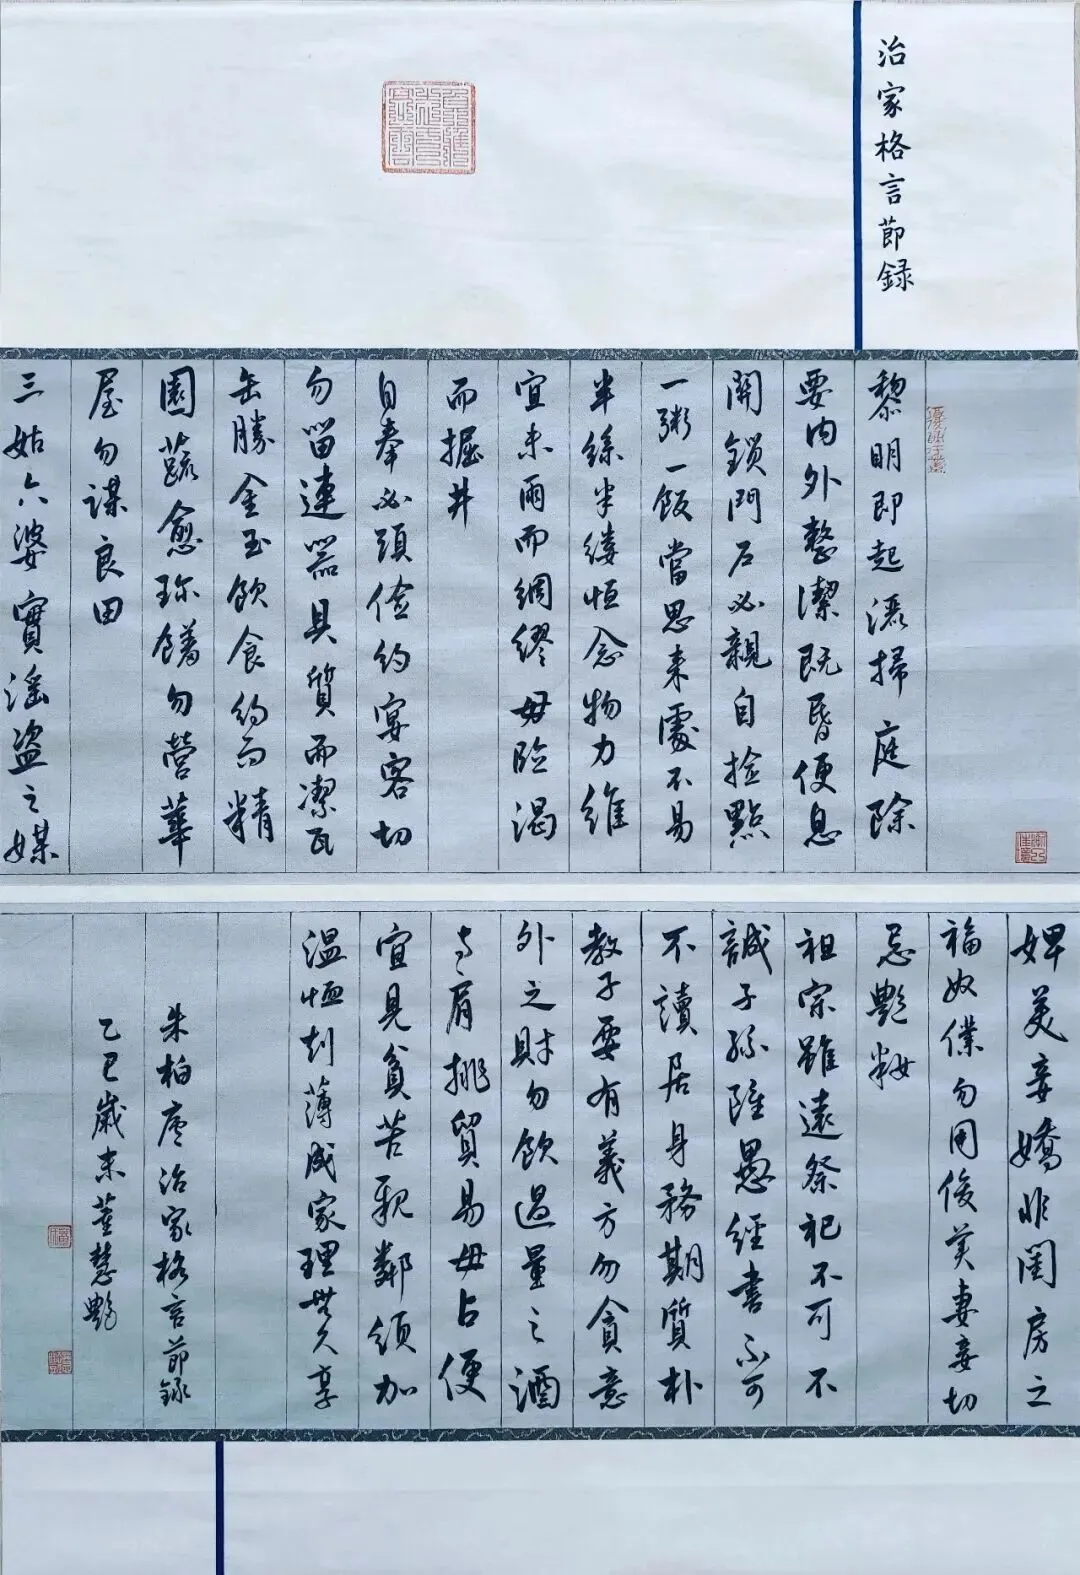 治家格言節録
黎明即起洒掃庭除
要内外整潔既昏便息
關鎖門户必親自捡點
一粥一飯當思来處不易
半絲半縷恒念物力維
宜未雨而綢繆毋臨渴
而掘井
自奉必須儉約宴客切
勿留連器具質而潔瓦
缶勝金玉飲食約而精
園蔬愈珎饈勿營華
屋勿謀良田
三姑六婆實淫盗之媒
婢美妾嬌非閨房之
福奴僕勿用俊美妻妾切
忌艷粧
祖宗雖遠祭祀不可不
誠子孫雖愚經書不可
不讀居身務期質朴
教子要有義方勿貪意
外之財勿飲過量之酒
與肩挑貿易毋占便
宜見貧苦親鄰須加
温恤刻薄成家理無久享
朱柏廬治家格言節録
乙巳歲末董慧艷